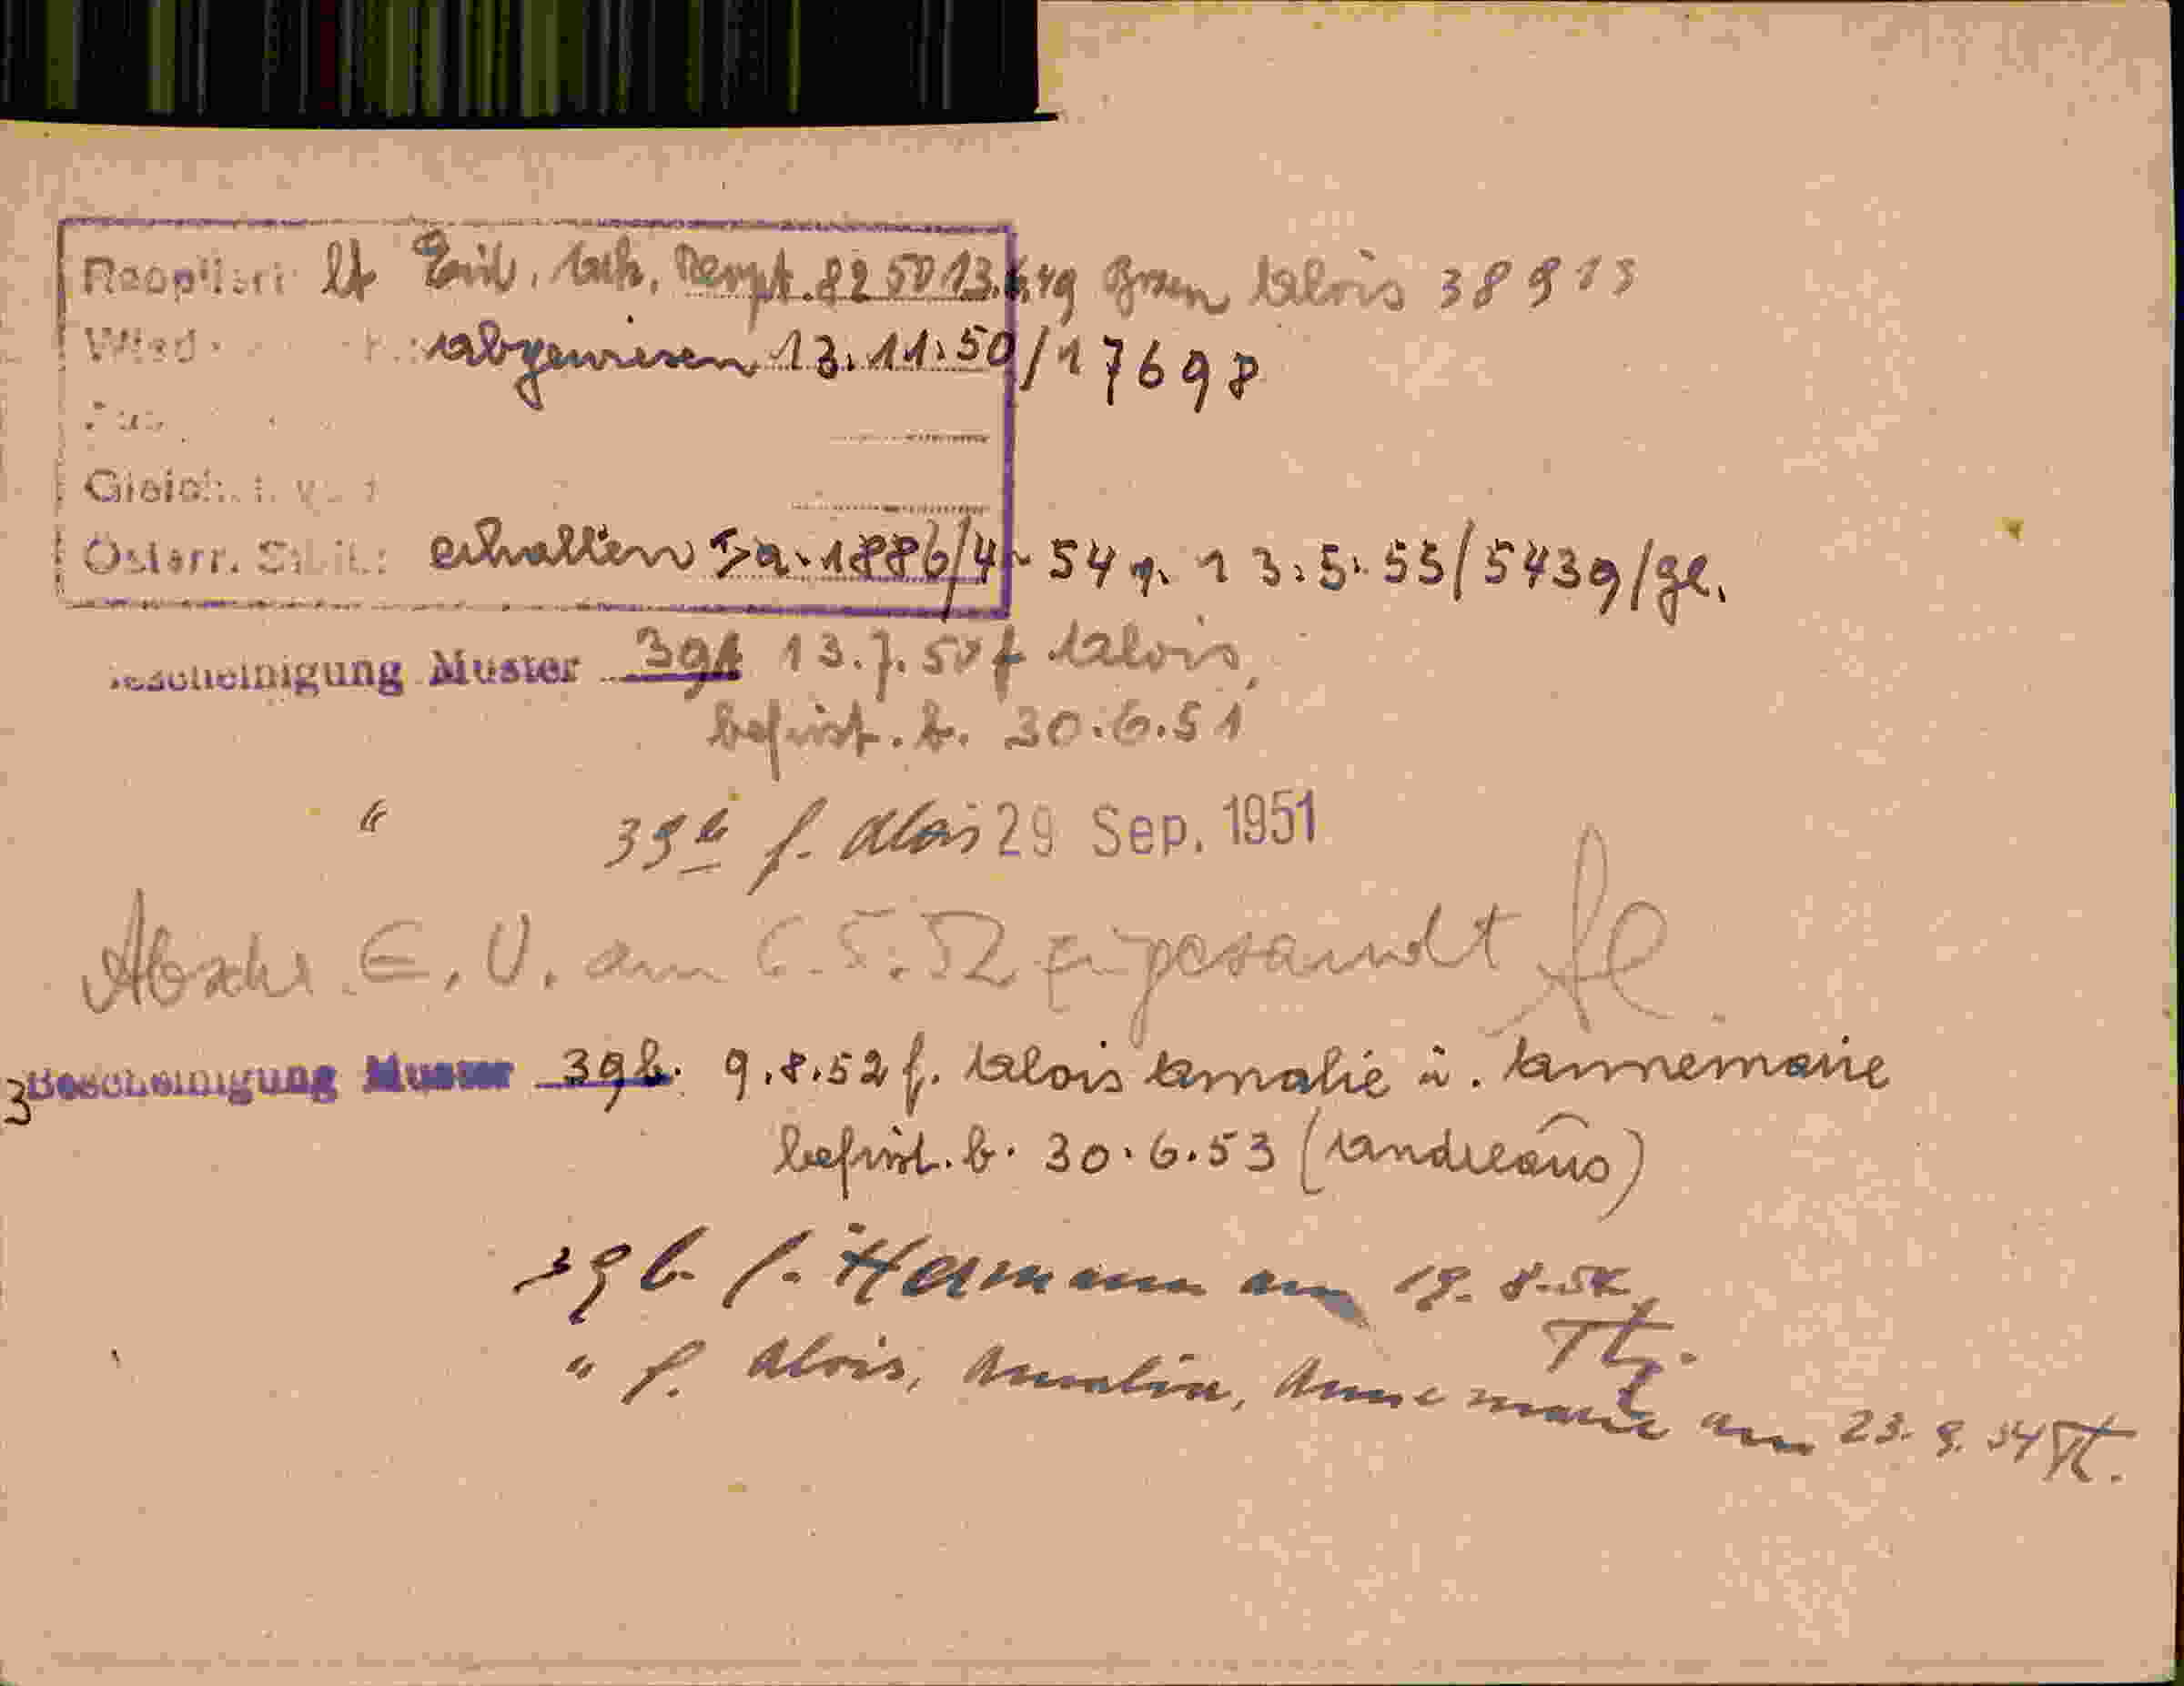 Reoptiert lt Eink. Nempt. 82 50 13.6.49 Brsen Alois 38913
abgewiesen 13.11.50/17698
Gleich
Österr. Stb.: erhalten Ia-1886/4-54 v. 13.5.55/5439/gl.
Bescheinigung Muster 39b 13.7.50 f Alois,
befrist. b. 30.6.51
" 39b f. Alois 29 Sep. 1951
Abschr. E. U. am 6.5.52 zugesandt
3 Bescheinigung Muster 39b. 9.8.52 f. Alois Amalie u. Annemarie
befrist. b. 30.6.53 (Andreaus)
39b. f. Hermann am 19.8.54
" f. Alois, Amalia, Annemarie am 23.9.54